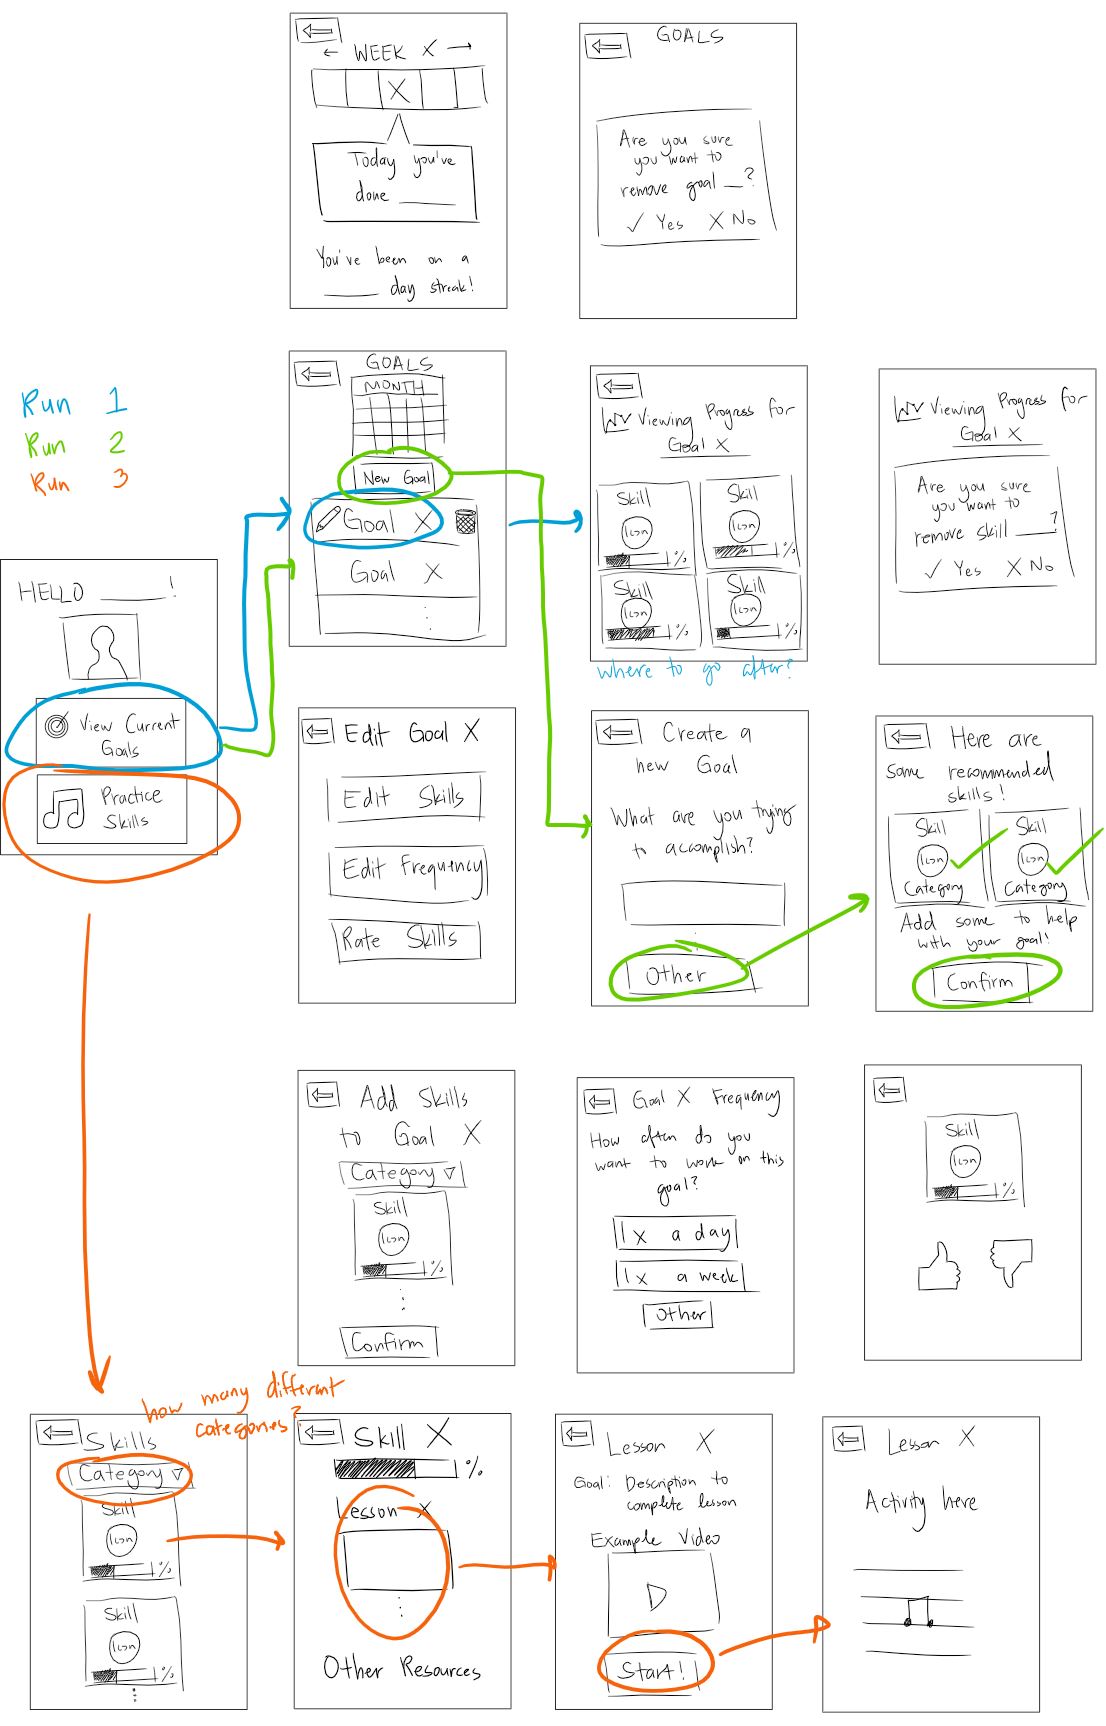 ← WEEK X →
X
Today you've
done ____
You've been on a
____ day streak!
GOALS
Are you sure
you want to
remove goal __?
✓ Yes X No
Run 1
Run 2
Run 3
HELLO ____!
View Current
Goals
Practice
Skills
GOALS
MONTH
New Goal
Goal X
Goal X
Viewing Progress for
Goal X
Skill
Icon
%
Skill
Icon
%
Skill
Icon
%
Skill
Icon
%
where to go after?
Viewing Progress for
Goal X
Are you sure
you want to
remove skill ____?
✓ Yes X No
Edit Goal X
Edit Skills
Edit Frequency
Rate Skills
Create a
new Goal
What are you trying
to accomplish?
Other
Here are
some recommended
skills!
Skill
Icon
Category
Skill
Icon
Category
Add some to help
with your goal!
Confirm
Add Skills
to Goal X
Category ▽
Skill
Icon
%
Confirm
Goal X Frequency
How often do you
want to work on this
goal?
1x a day
1x a week
Other
Skill
Icon
%
how many different
categories?
Skills
Category ▽
Skill
Icon
%
Skill
Icon
%
Skill X
%
Lesson X
Other Resources
Lesson X
Goal: Description to
complete lesson
Example Video
Start!
Lesson X
Activity here